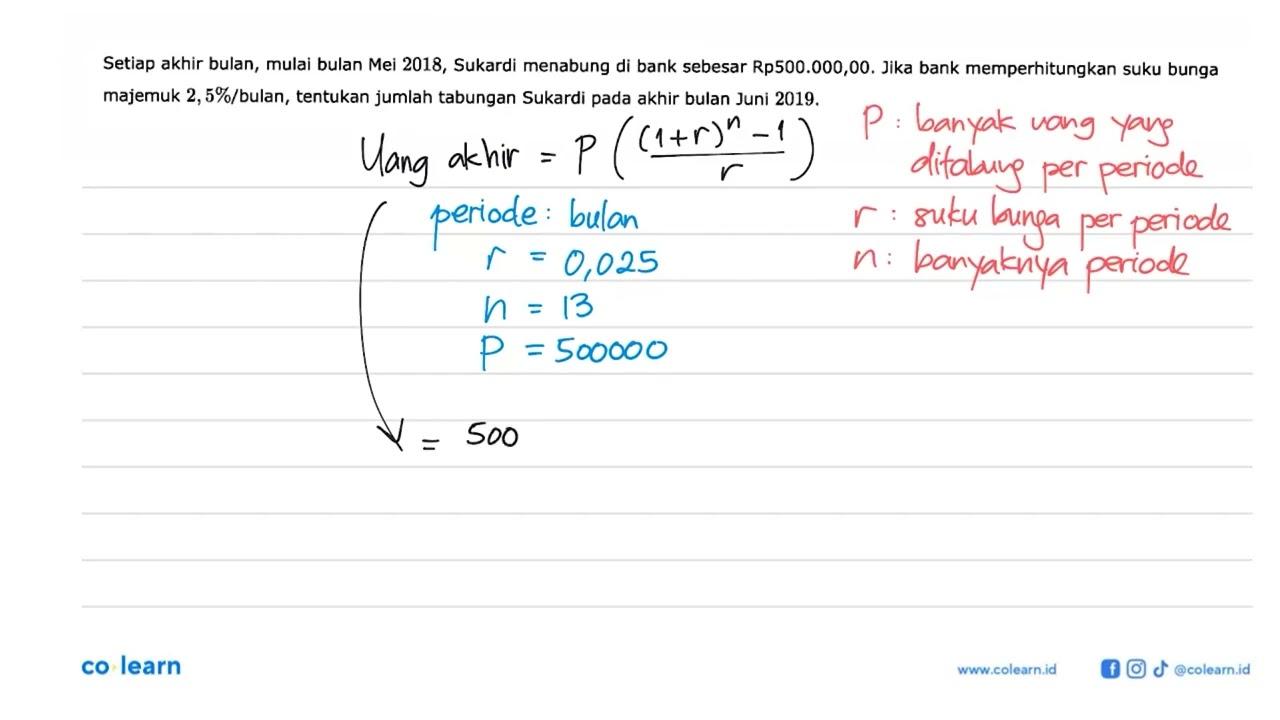 Setiap akhir bulan, mulai bulan Mei 2018, Sukardi menabung di bank sebesar Rp500.000,00. Jika bank memperhitungkan suku bunga
majemuk 2,5%/bulan, tentukan jumlah tabungan Sukardi pada akhir bulan Juni 2019.
Uang akhir = P(((1+r)^n - 1)/r)
P : banyak uang yang
ditabung per periode
r : suku bunga per periode
n : banyaknya periode
periode : bulan
r = 0,025
n = 13
P = 500000
= 500
co learn
www.colearn.id
@colearn.id